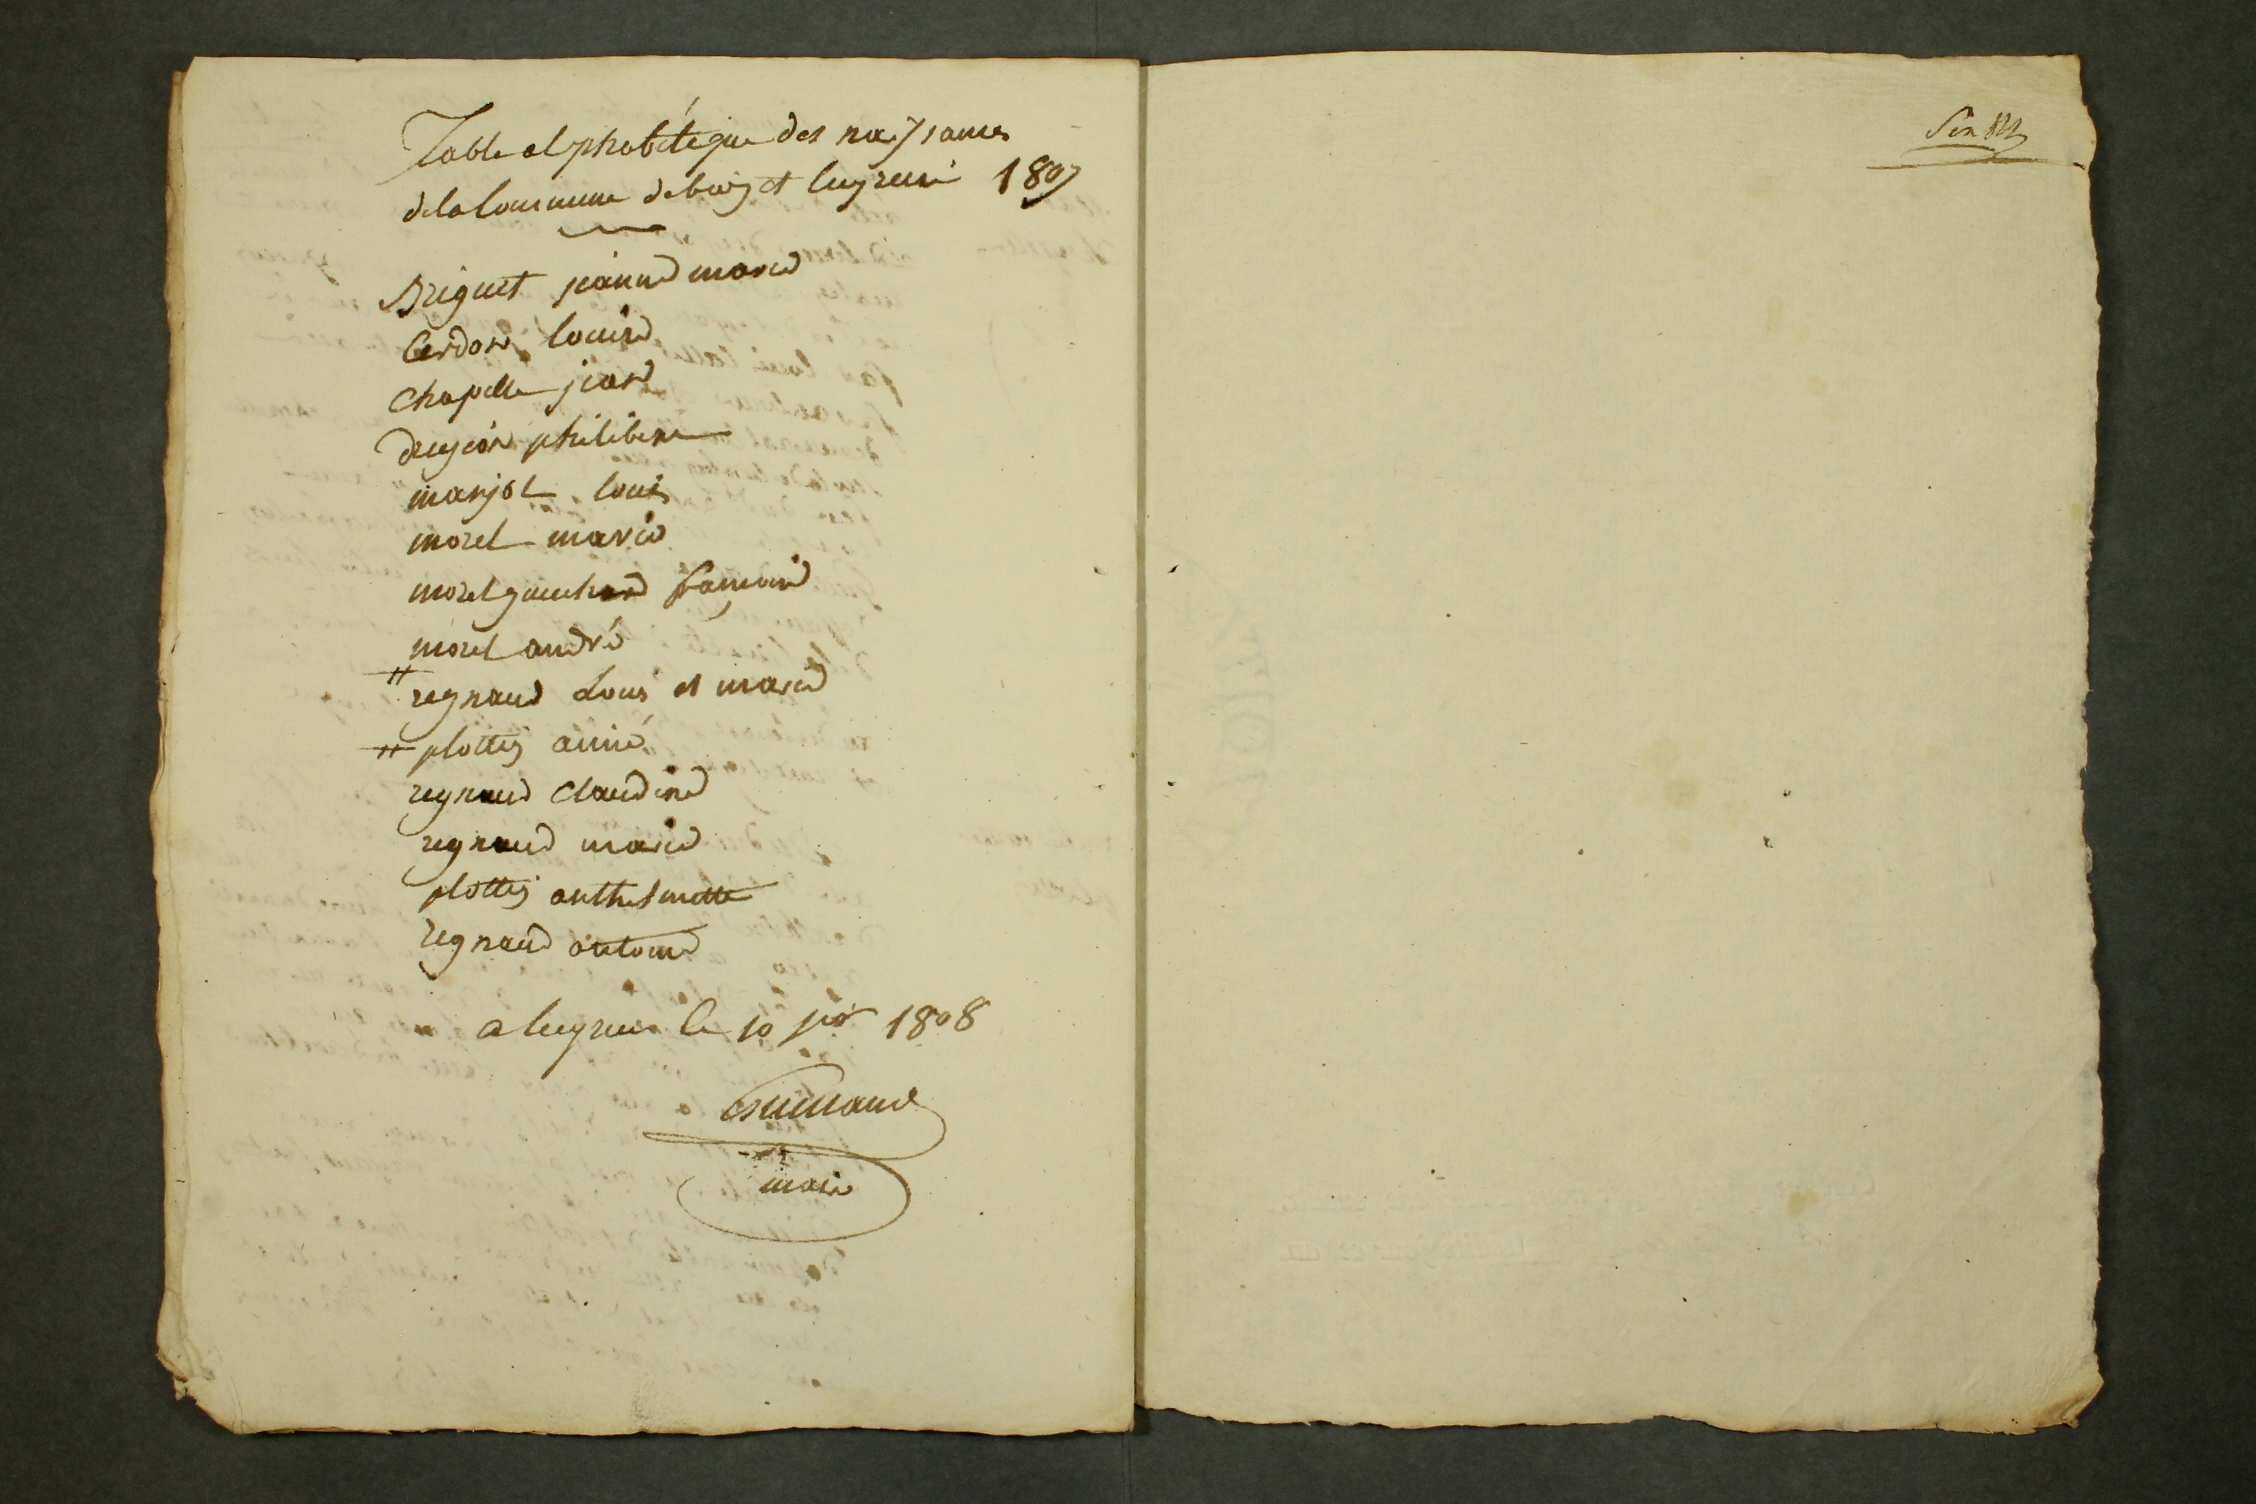 Table alphabétique des naissances
de la Commune de boz et leyrieu 1807
Briguet jeanne marie
Cerdon louise
Chapelle jean
drugeon philiberte
marjol louis
morel marie
morel gauchand françoise
morel andré
regnaud Louis et marie
plottij aimé
regnaud Claudine
regnaud marie
plottij anthelmette
regnaud antoine
a le 10 1808
maire